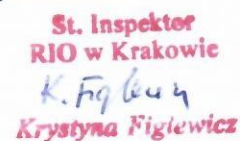 St. Inspektor
RIO w Krakowie
K. Figlewicz
Krystyna Figlewicz